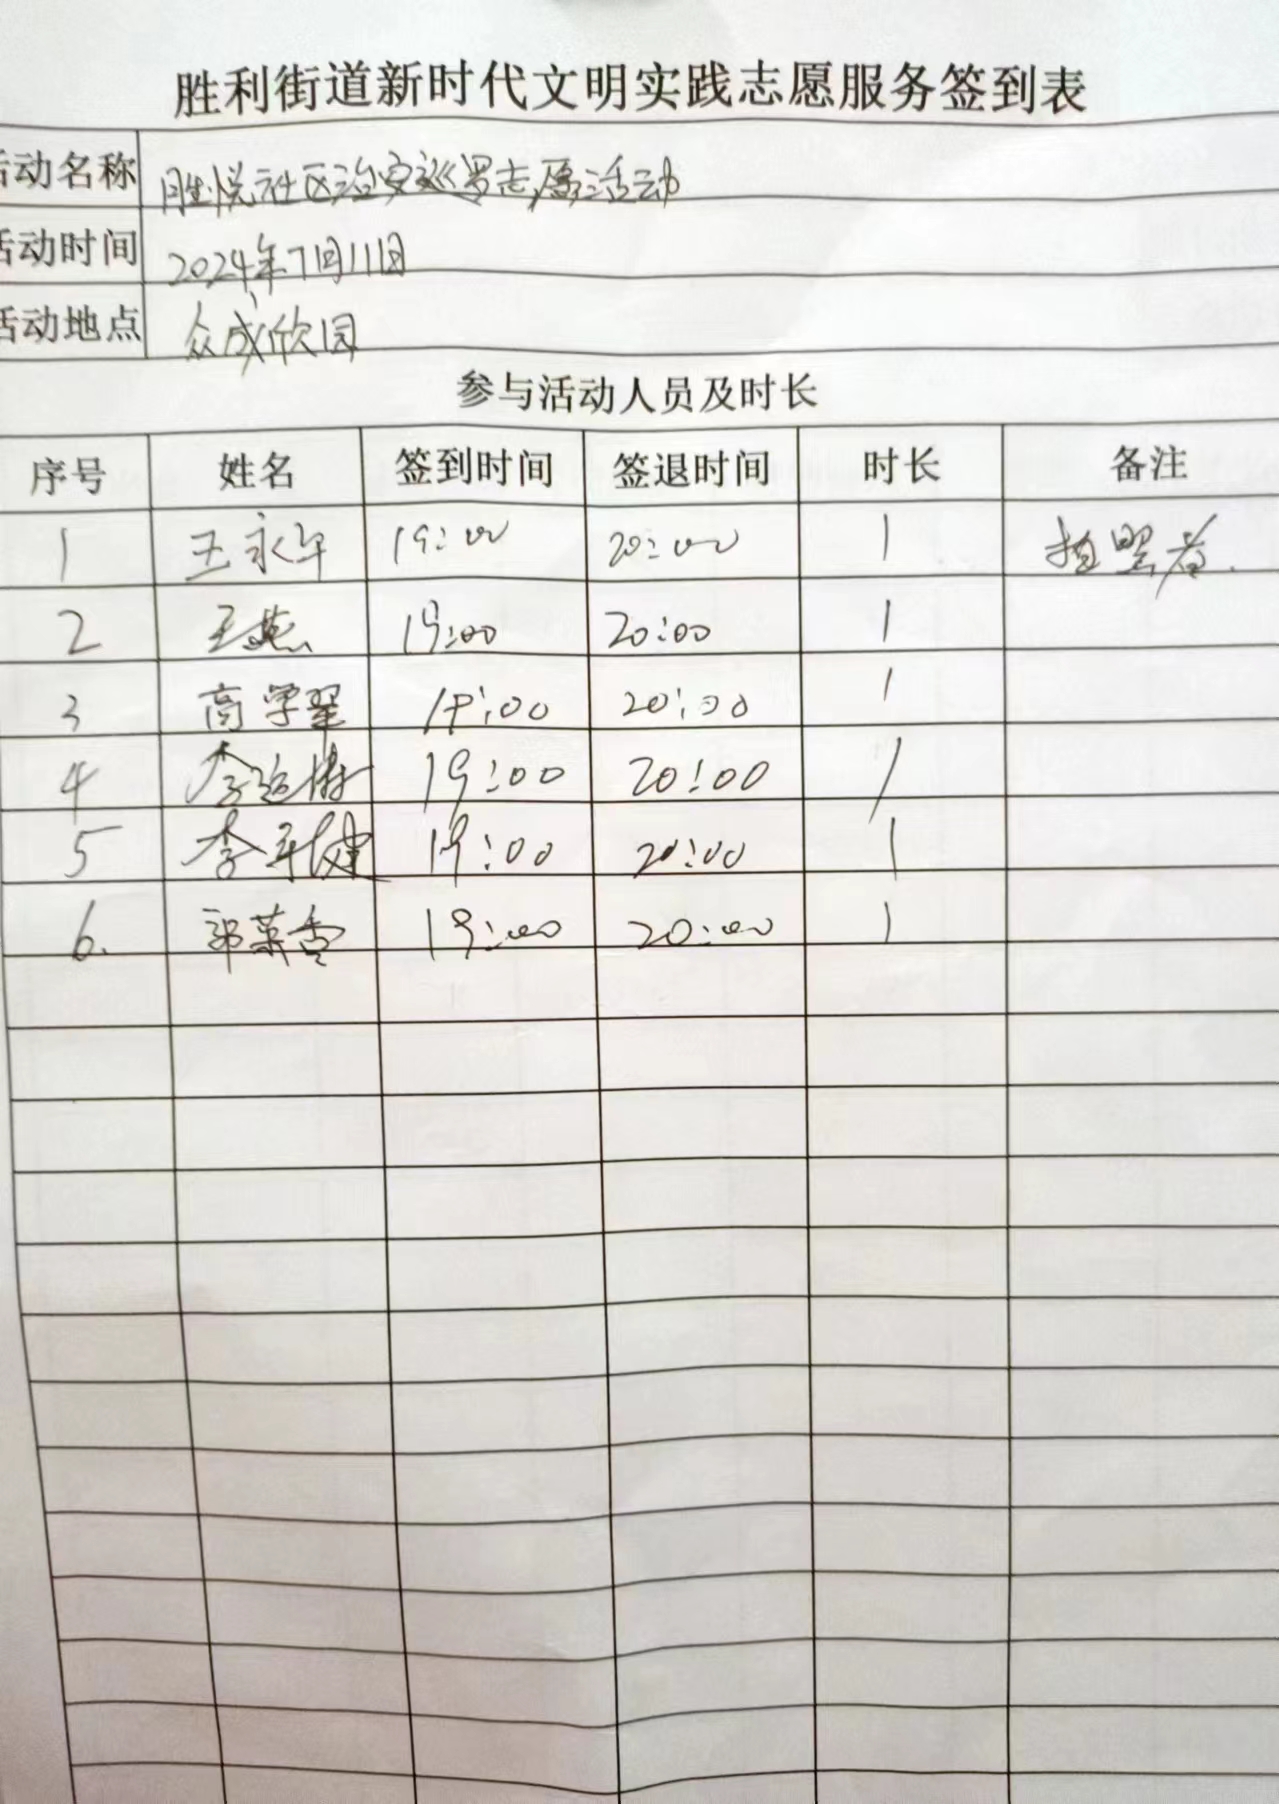 胜利街道新时代文明实践志愿服务签到表
活动名称 胜悦社区治安巡罗志愿活动
活动时间 2024年7月11日
活动地点 众成欣园
参与活动人员及时长
序号 姓名 签到时间 签退时间 时长 备注
1 王永年 19:00 20:00 1 拍照者.
2 王燕 19:00 20:00 1
3 高学翠 19:00 20:00 1
4 李运 19:00 20:00 1
5 李年健 19:00 20:00 1
6. 郭菜香 19:00 20:00 1